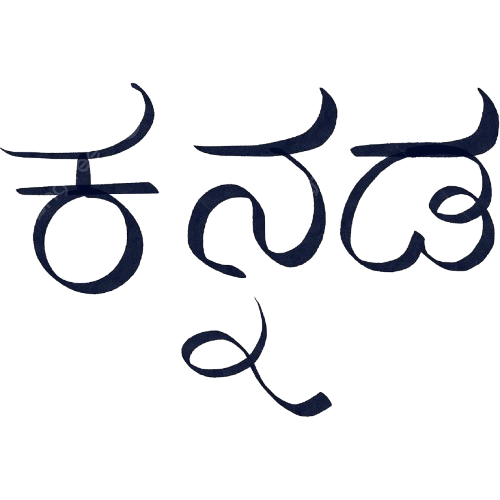 ಕನ್ನಡ